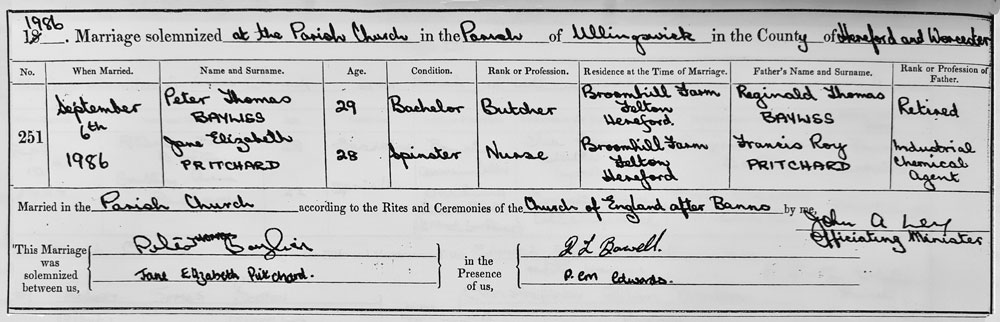 1986
18__. Marriage solemnized at the Parish Church in the Parish of Ullingswick in the County of Hereford and Worcester
No. When Married. Name and Surname. Age. Condition. Rank or Profession. Residence at the Time of Marriage. Father's Name and Surname. Rank or Profession of Father.
251
September 6th 1986
Peter Thomas BAYLISS 29 Bachelor Butcher Broomhill Farm Felton Hereford Reginald Thomas BAYLISS Retired
Jane Elizabeth PRITCHARD 28 Spinster Nurse Broomhill Farm Felton Hereford Francis Roy PRITCHARD Industrial Chemical Agent
Married in the Parish Church according to the Rites and Ceremonies of the Church of England after Banns by me,
John A Ley
Officiating Minister
This Marriage was solemnized between us,
Peter Thomas Bayliss
Jane Elizabeth Pritchard.
in the Presence of us,
P. em edwards.